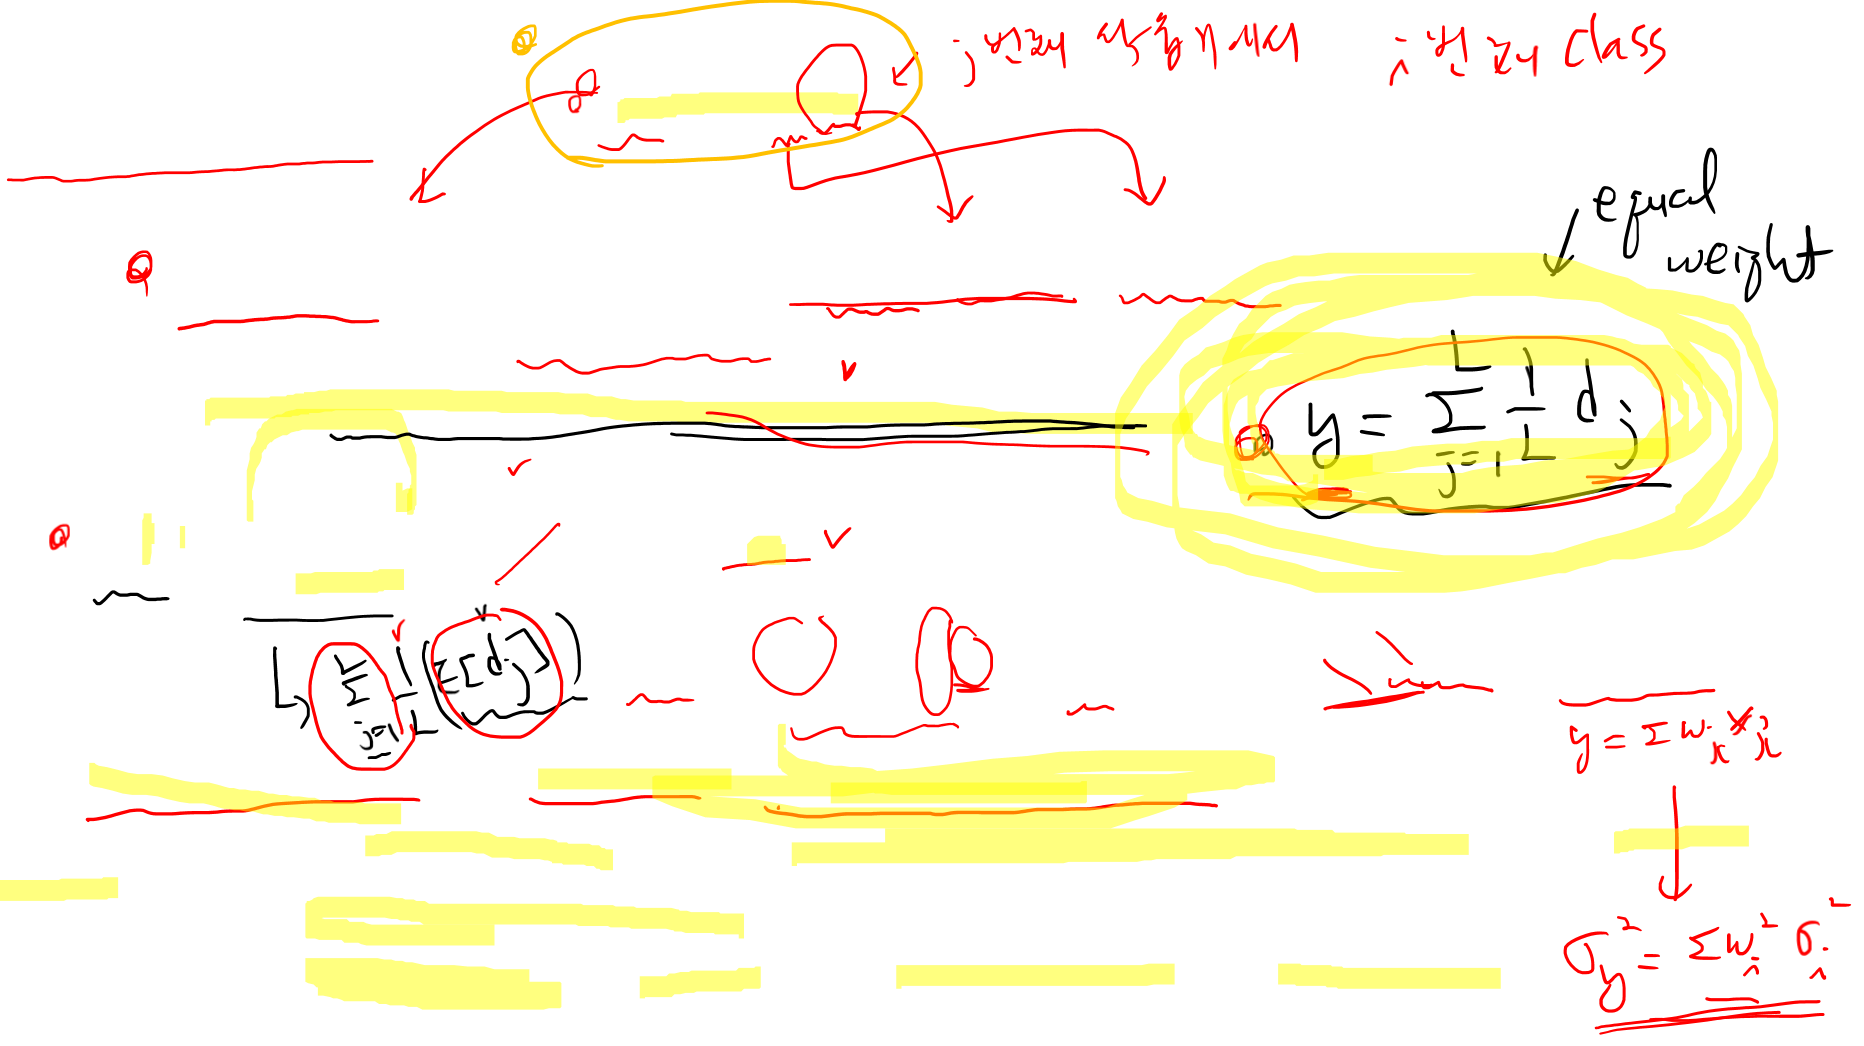 j번째 학습기에서 i번째 class
equal
weight
y = Σ_{j=1}^{L} 1/L d_j
↳ Σ_{j=1}^{L} 1/L (E[d_j])
y = Σ w_i x_i
σ_y² = Σ w_i² σ_i²